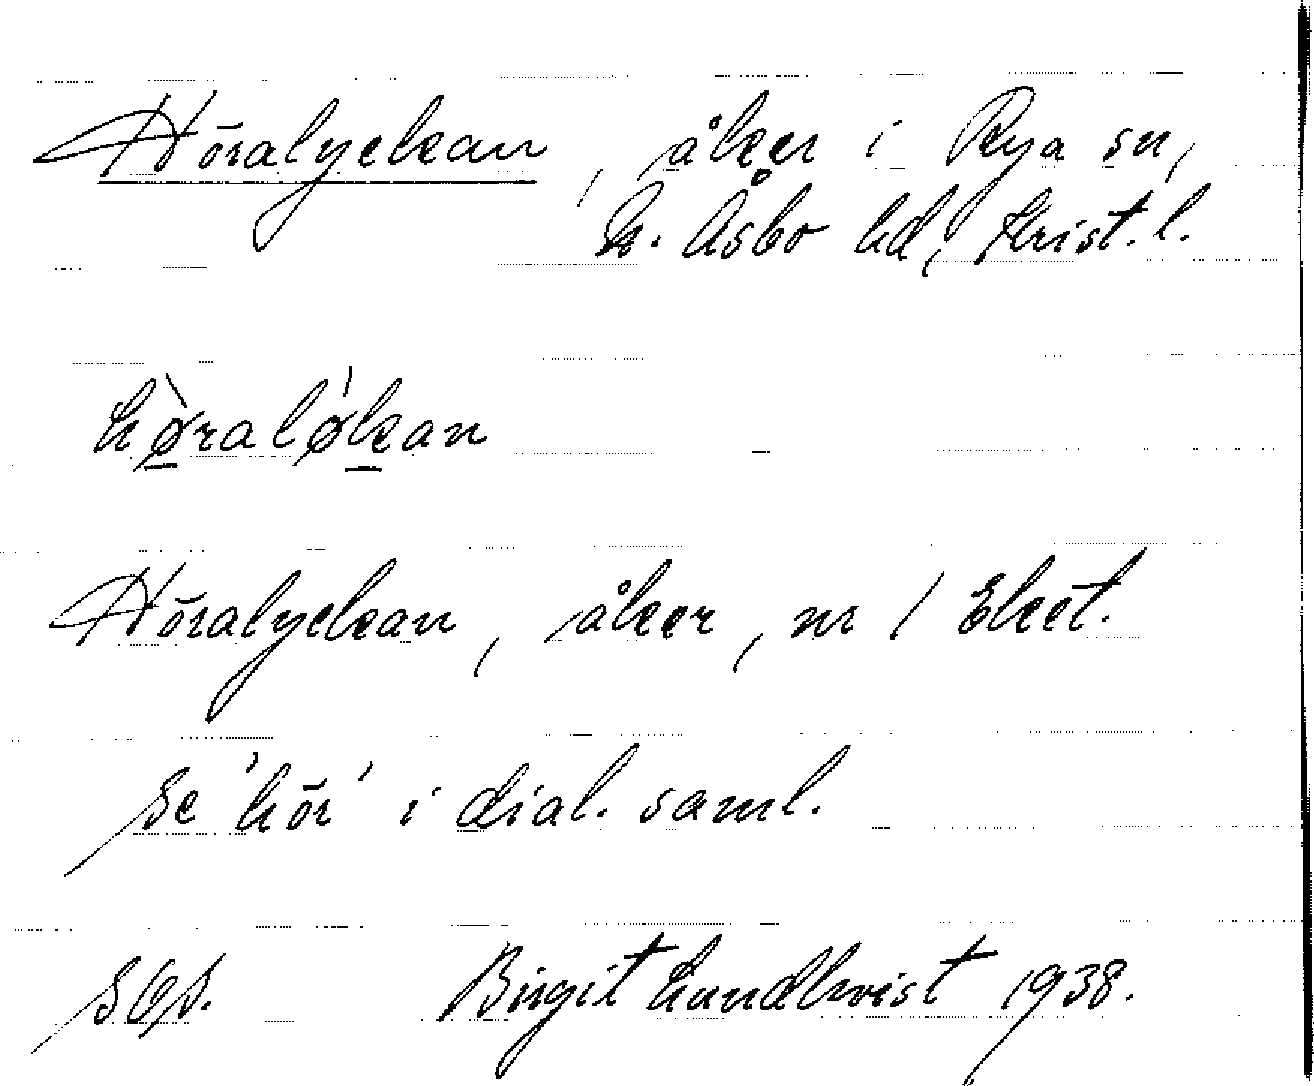 Höralyckan, åker i Rya sn,
N. Åsbo hd, Krist. l.
hø̠̀raló̷k̠an
Höralyckan, åker, nr 1 Eket.
Se 'hör' i dial. saml.
Birgit Lundkvist 1938.